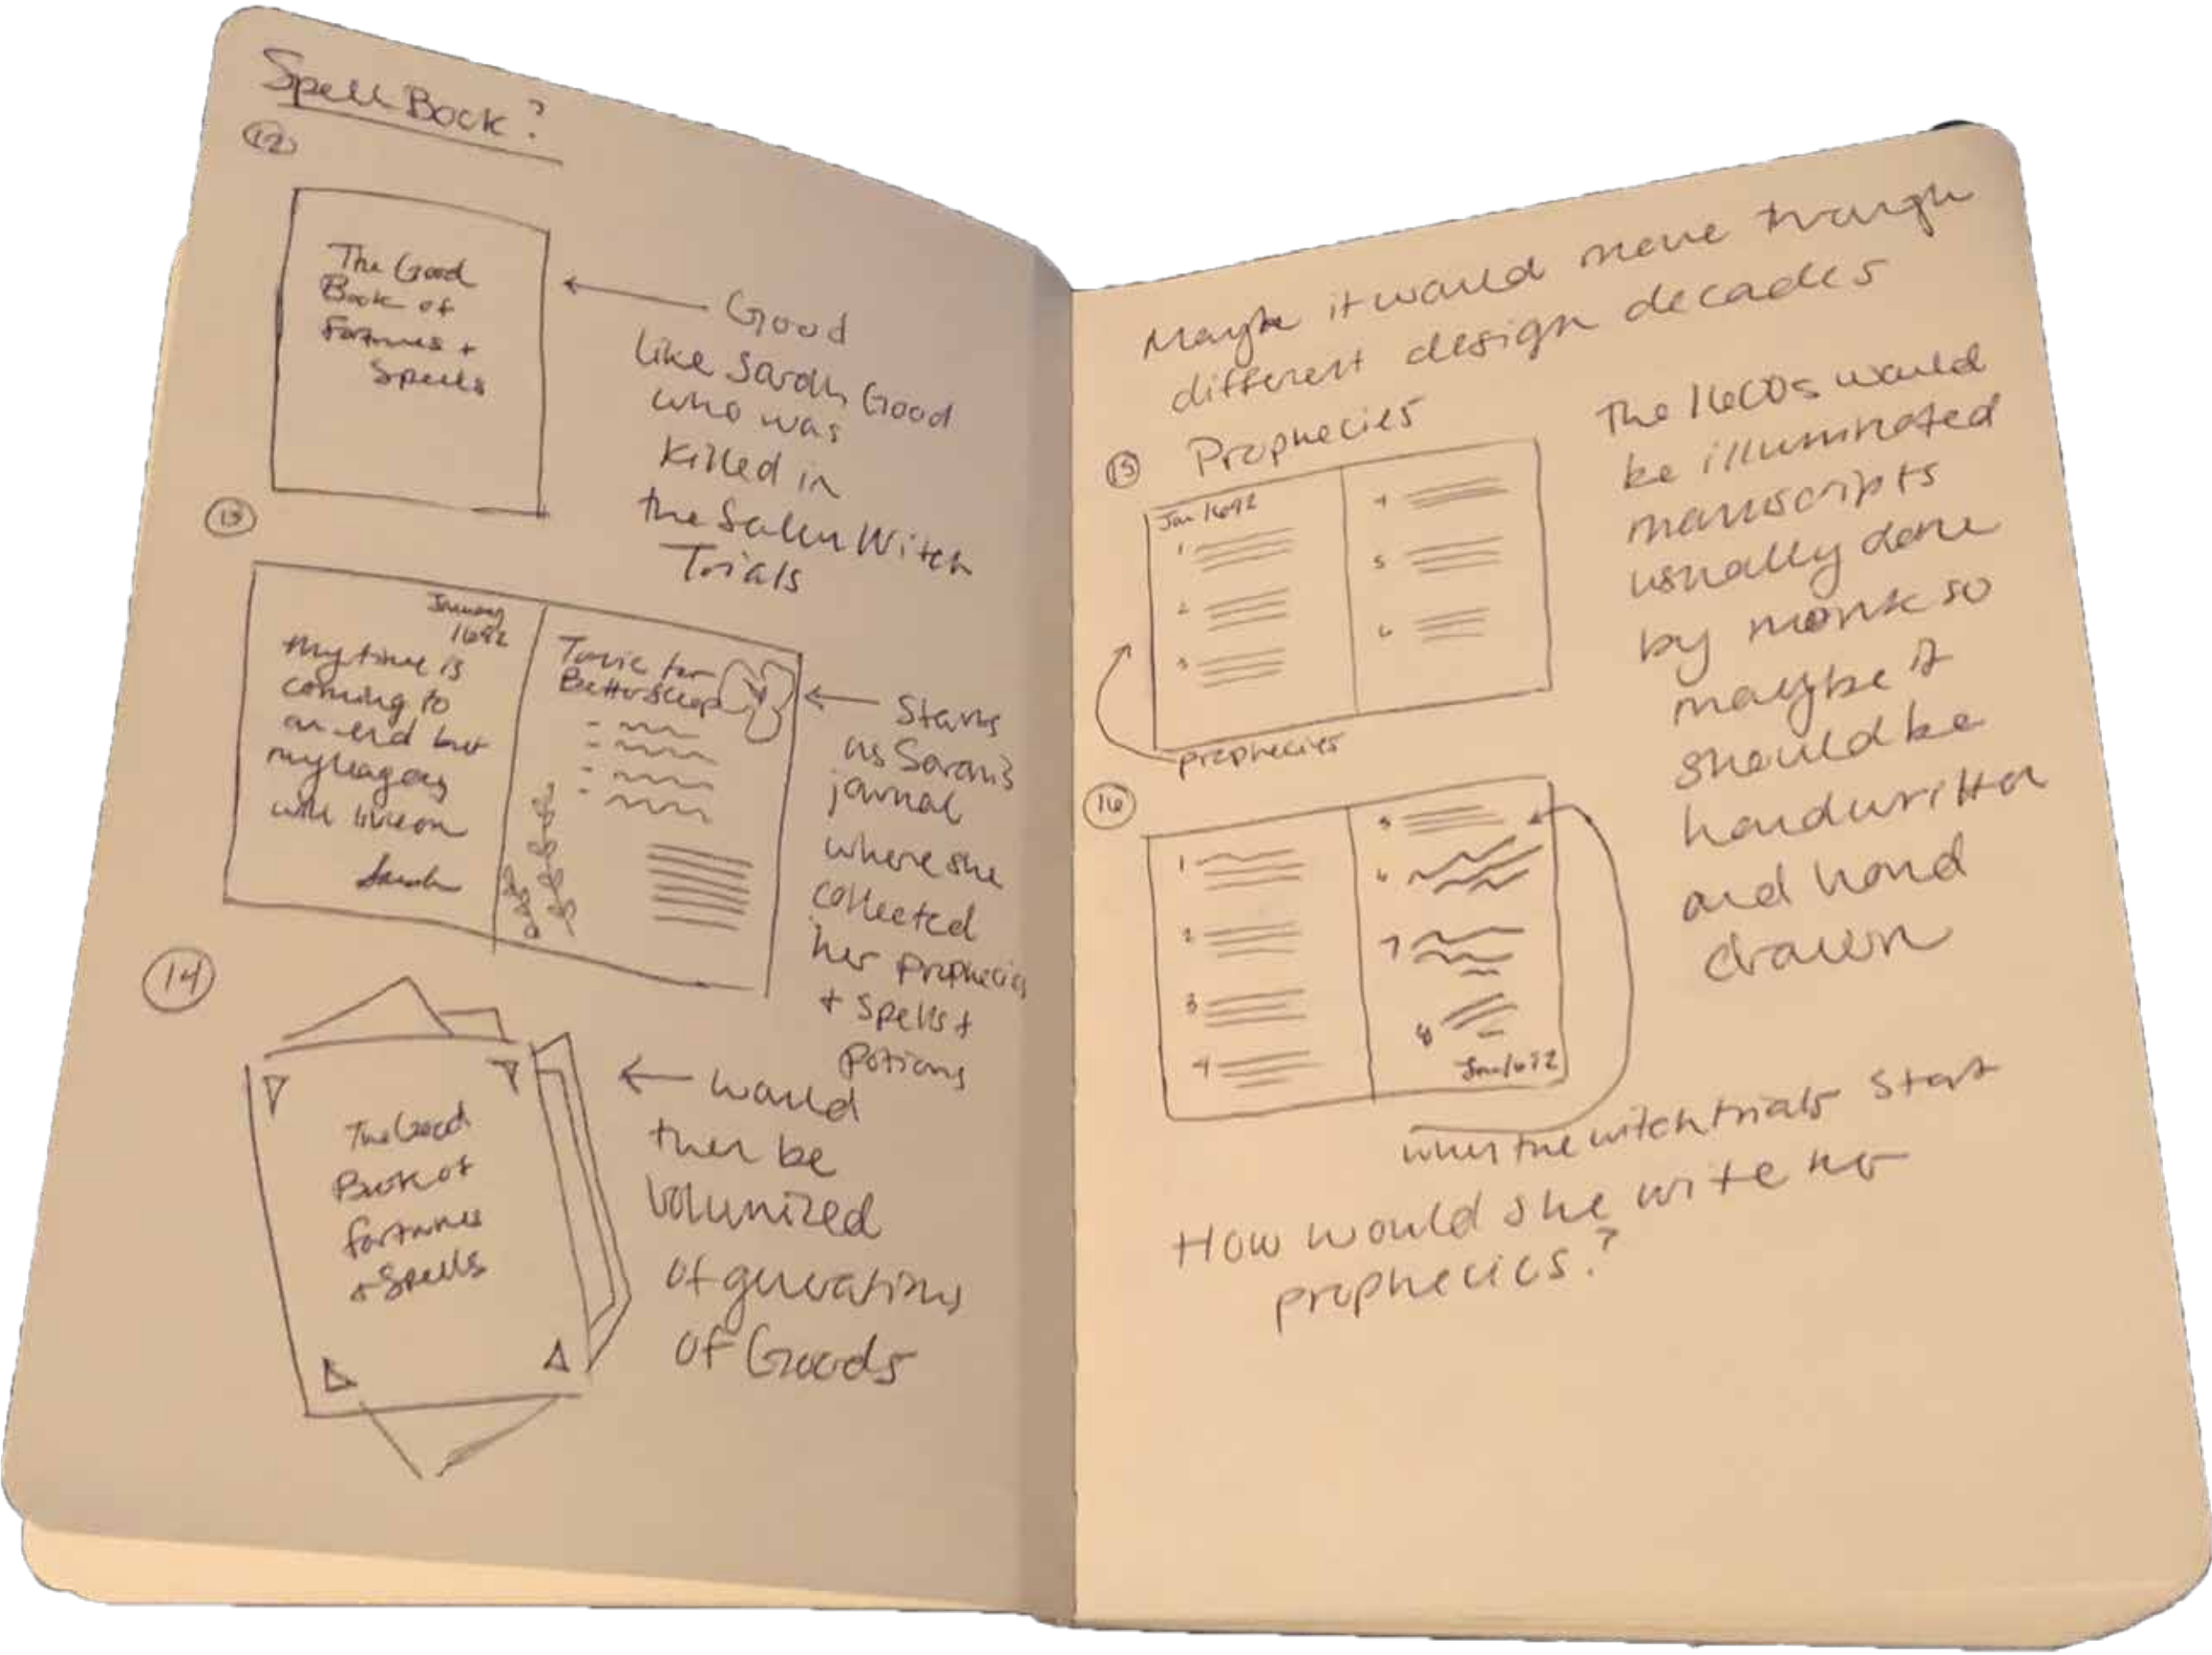 Spell Book?
12
The Good
Book of
Fortunes +
Spells
Good
like Sarah Good
who was
killed in
the Salem Witch
Trials
13
January
1692
My time is
coming to
an end but
my legacy
will live on
Sarah
Tonic for
Better Sleep
Starts
as Sarah's
journal
where she
collected
her prophecies
+ spells +
potions
14
The Good
Book of
fortunes
+ Spells
would
then be
volumized
of generations
of Goods
Maybe it would move through
different design decades
15 Prophecies
Jan 1692
1
2
3
4
5
6
prophecies
The 1600s would
be illuminated
manuscripts
usually done
by monk so
maybe it
should be
handwritten
and hand
drawn
16
1
2
3
4
5
6
7
8
Jan 1692
when the witch trials start
How would she write her
prophecies?